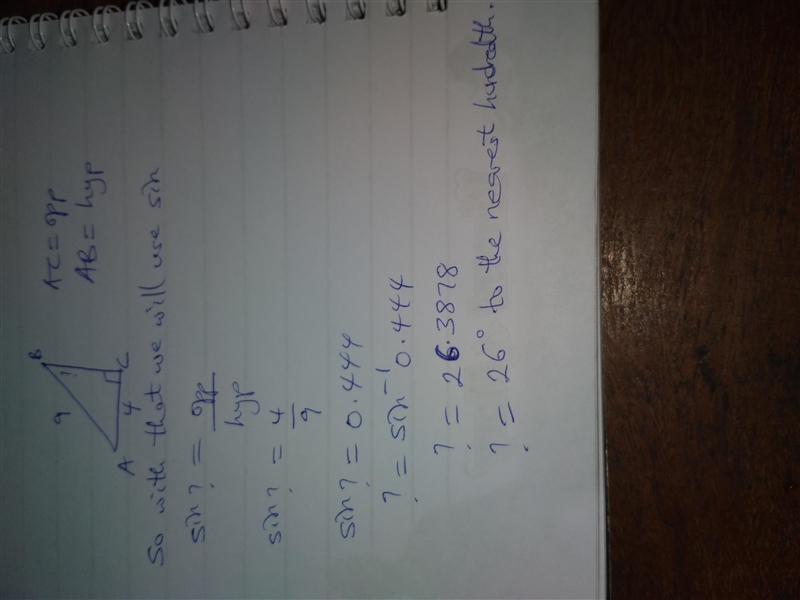 B
9
?
A
4
C
AC = opp
AB = hyp
So with that we will use sin
sin ? = opp/hyp
sin ? = 4/9
sin ? = 0.444
? = sin⁻¹ 0.444
? = 26.3878
? = 26° to the nearest hundredth.